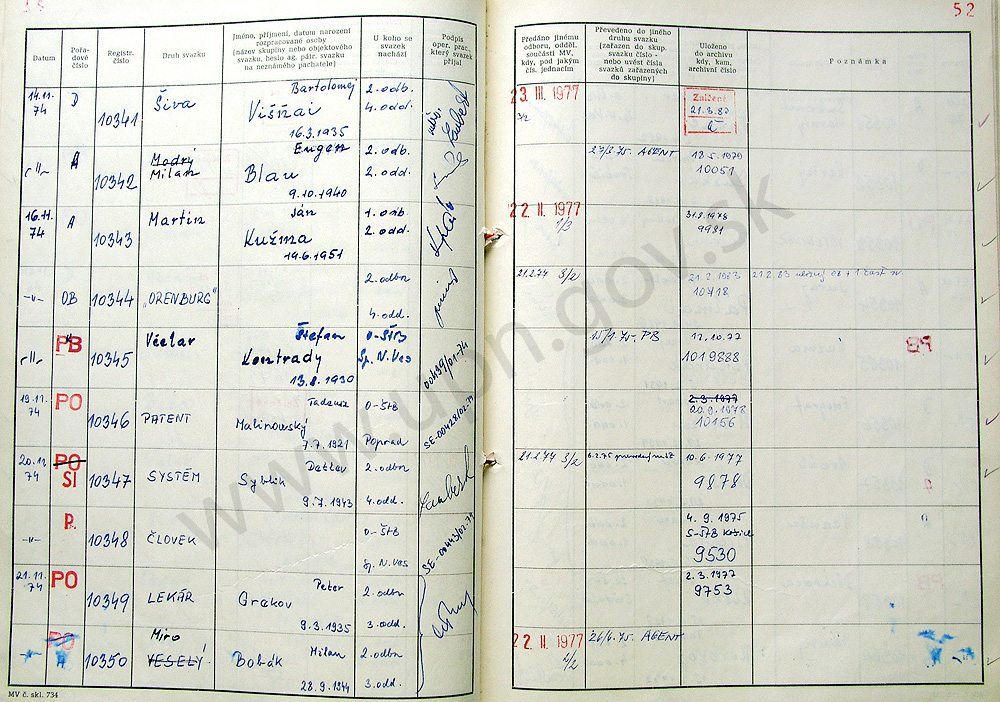 52
Datum
Pořa-
dové
číslo
Registr.
číslo
Druh svazku
Jméno, příjmení, datum narození
rozpracované osoby
(název skupiny nebo objektového
svazku, heslo ag. pátr. svazku
na neznámého pachatele)
U koho se
svazek
nachází
Podpis
oper. prac.,
který svazek
přijal
Předáno jinému
odboru, odděl.
součásti MV,
kdy, pod jakým
čís. jednacím
Převedeno do jiného
druhu svazku
(zařazen do skup.
svazku číslo -
nebo uvést čísla
svazků zařazených
do skupiny)
Uloženo
do archivu
kdy, kam,
archivní číslo
Poznámka
14.11.
74
D
10341
Šiva
Bartolomej
Višňai
16.3.1935
2. odb.
4. odd.
23. III. 1977
3/2
Zničené
10342
Modrý
Milan
Eugen
Blau
9.10.1940
2. odb.
2. odd.
AGENT
18.5.1979
10051
16.11.
74
A
10343
Martin
Ján
Kužma
19.6.1951
1. odb.
2. odd.
22. II. 1977
1/3
9981
-v-
OB
10344
„ORENBURG"
2. odbn
4. odd.
21.2.74 3/2
10418
PB
10345
Štefan
Kontrady
Sp. N. Ves
00439/01-74
PB
1019888
PB
19.11.
74
PO
10346
PATENT
Tadeusz
Malinowský
7.7.1921
O-ŠTB
Poprad
SE-00428/02-74
2.3.1977
20.9.1978
10156
20.11
74
PO
SI
10347
SYSTÉM
Detlev
9.7.1943
2. odbn
4. odd.
21.2.74 3/2
10.6.1977
9878
-v-
P.
10348
ČLOVEK
O-ŠTB
Sp. N. Ves
SE-00443/02-74
4. 9. 1975
S-ŠTB Košice
9530
21.11.
74
PO
10349
LEKÁR
Peter
Grekov
9.3.1935
2. odbn
3. odd.
2.3.1977
9753
PO
10350
Miro
VESELÝ
Milan
Bobák
28.9.1944
2. odbn
3. odd.
22. II. 1977
26/6.75. AGENT
MV č. skl. 734
www.upn.gov.sk